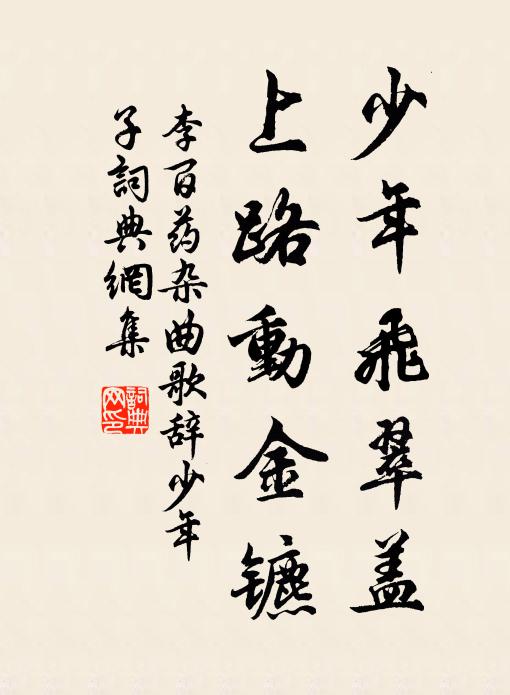 少年飛翠盖
上路動金镳
李百药杂曲歌辞少年
子詞典網集
詞典
网印